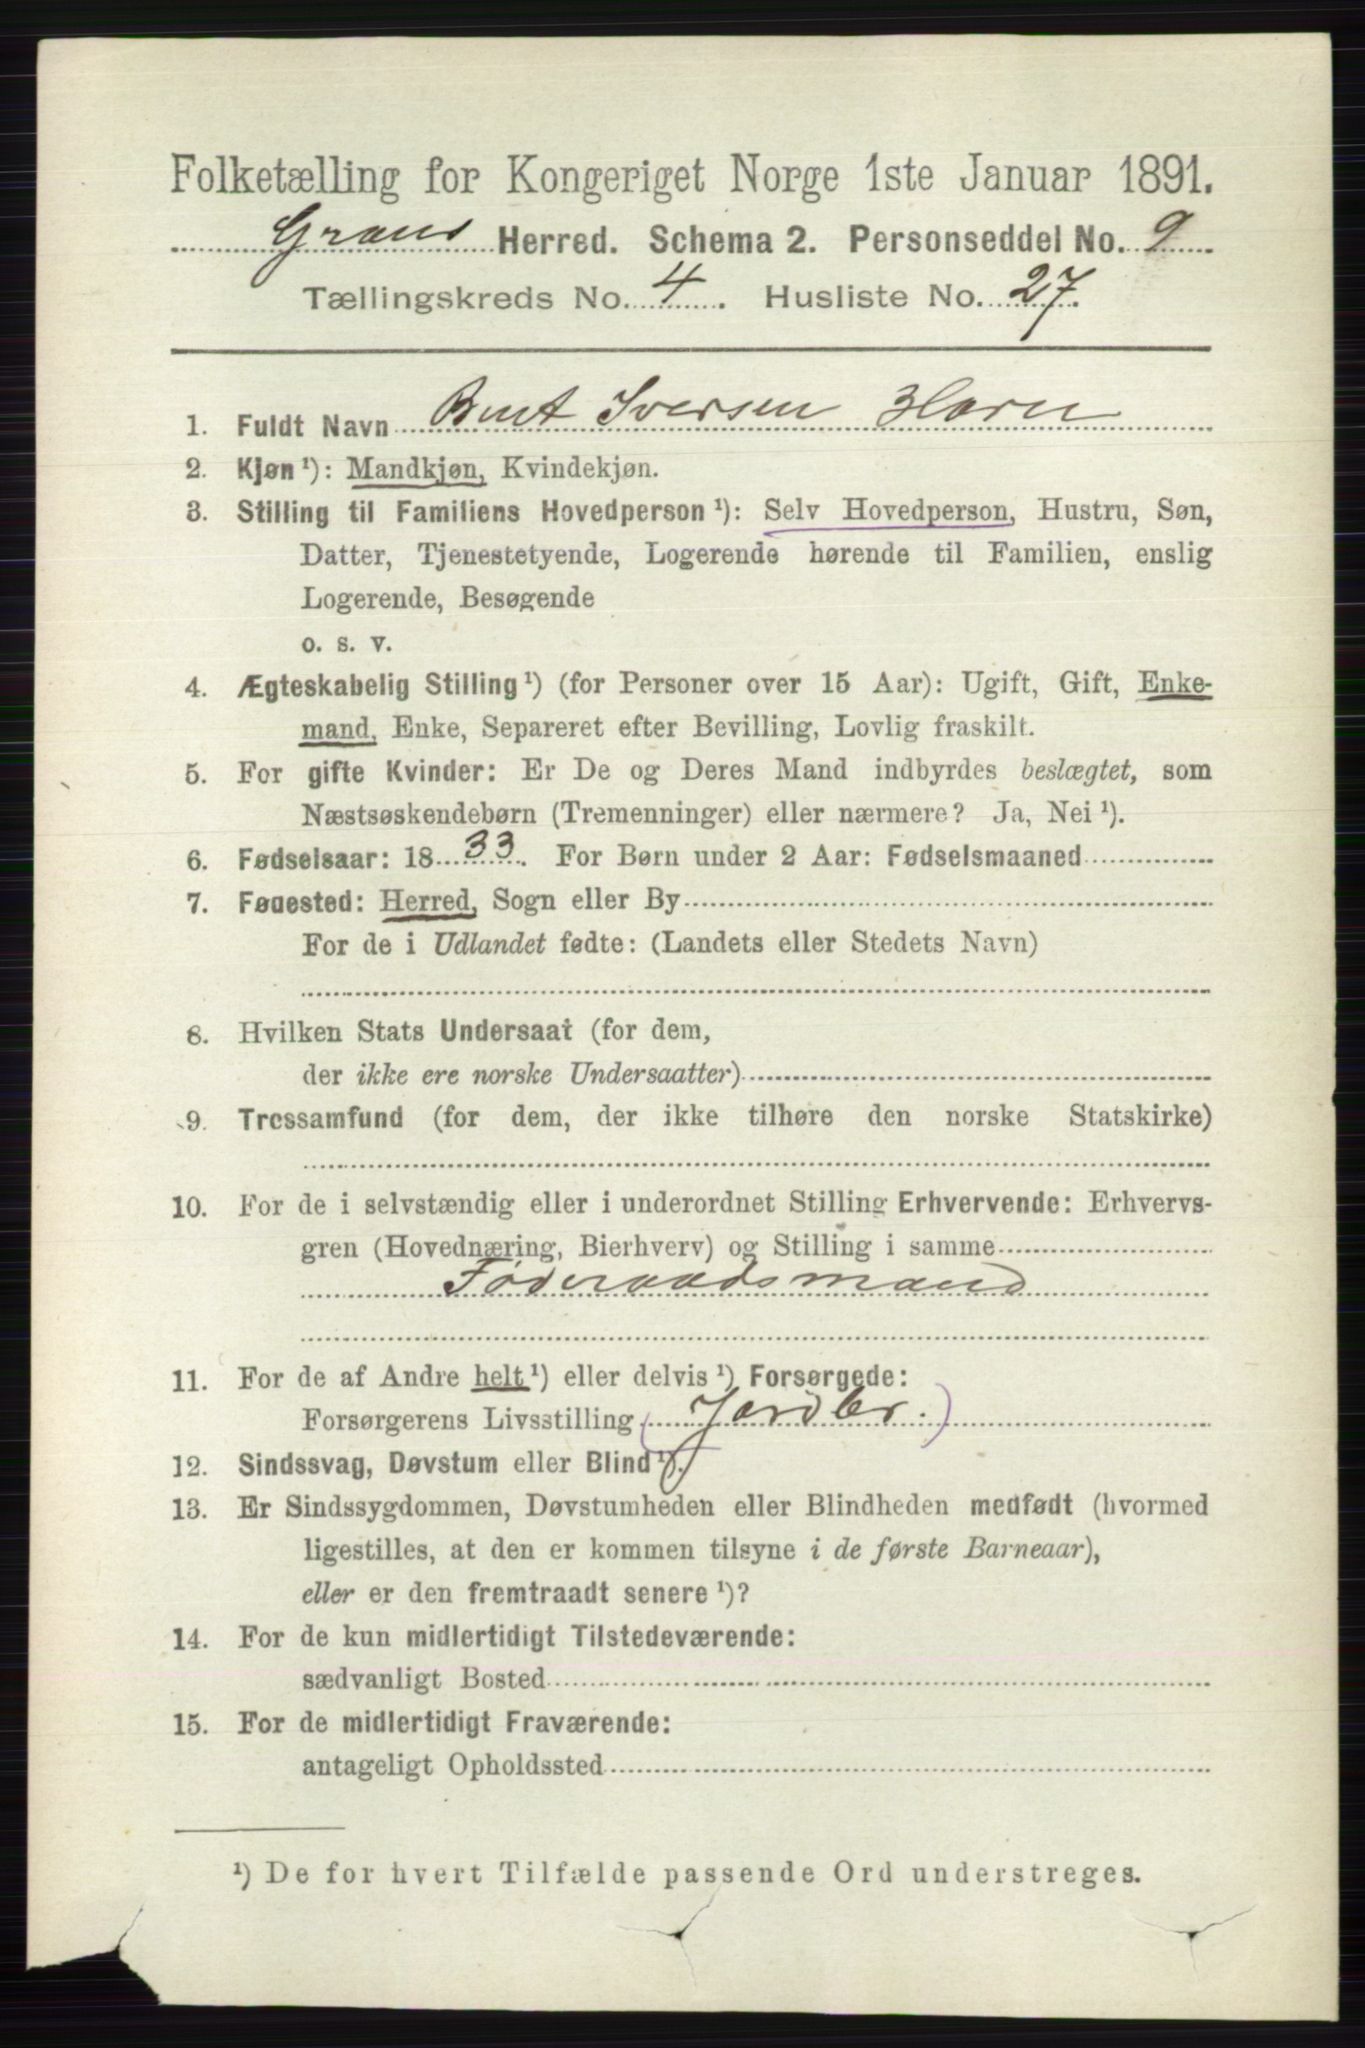 Folketælling for Kongeriget Norge 1ste Januar 1891.
Grans Herred. Schema 2. Personseddel No. 9
Tællingskreds No. 4. Husliste No. 27.
1. Fuldt Navn Bent Iversen Horn
2. Kjøn ¹): Mandkjøn, Kvindekjøn.
3. Stilling til Familiens Hovedperson ¹): Selv Hovedperson, Hustru, Søn,
Datter, Tjenestetyende, Logerende hørende til Familien, enslig
Logerende, Besøgende
o. s. v.
4. Ægteskabelig Stilling ¹) (for Personer over 15 Aar): Ugift, Gift, Enke-
mand, Enke, Separeret efter Bevilling, Lovlig fraskilt.
5. For gifte Kvinder: Er De og Deres Mand indbyrdes beslægtet, som
Næstsøskendebørn (Tremenninger) eller nærmere? Ja, Nei ¹).
6. Fødselsaar: 18 33. For Børn under 2 Aar: Fødselsmaaned
7. Fødested: Herred, Sogn eller By
For de i Udlandet fødte: (Landets eller Stedets Navn)
8. Hvilken Stats Undersaat (for dem,
der ikke ere norske Undersaatter)
9. Trossamfund (for dem, der ikke tilhøre den norske Statskirke)
10. For de i selvstændig eller i underordnet Stilling Erhvervende: Erhvervs-
gren (Hovednæring, Bierhverv) og Stilling i samme
Føderaadsmand
11. For de af Andre helt ¹) eller delvis ¹) Forsørgede:
Forsørgerens Livsstilling (Jordbr.)
12. Sindssvag, Døvstum eller Blind ¹).
13. Er Sindssygdommen, Døvstumheden eller Blindheden medfødt (hvormed
ligestilles, at den er kommen tilsyne i de første Barneaar),
eller er den fremtraadt senere ¹)?
14. For de kun midlertidigt Tilstedeværende:
sædvanligt Bosted
15. For de midlertidigt Fraværende:
antageligt Opholdssted
¹) De for hvert Tilfælde passende Ord understreges.